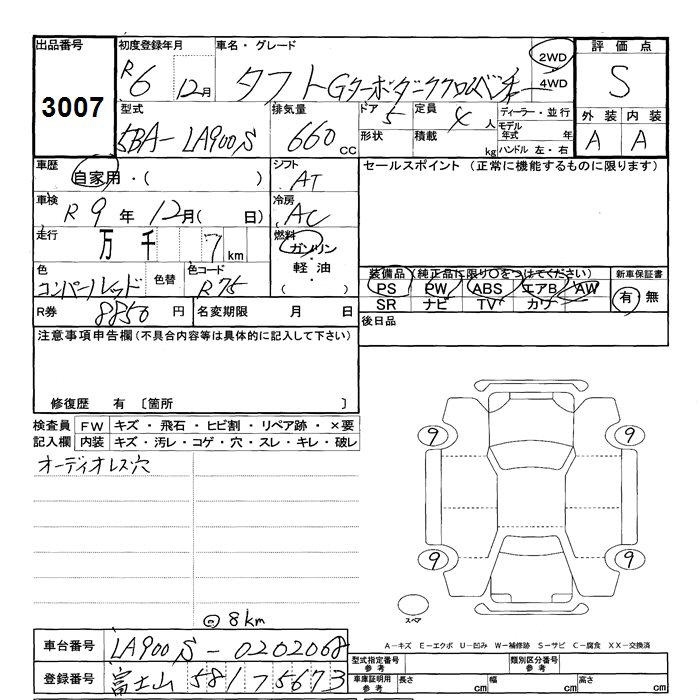 出品番号 初度登録年月 車名・グレード 評価点
3007 R6 12月 タフト Gターボダーククロムベンチャー 2WD 4WD S
型式 排気量 ドア 定員 ディーラー・並行 外装 内装
5BA-LA900S 660 cc 5 4人 モデル年式 年 A A
形状 積載 kg ハンドル 左・右
車歴 シフト セールスポイント (正常に機能するものに限ります)
自家用・( ) AT
車検 冷房
R 9年 12月( 日) AC
走行 燃料
万 千 7 km ガソリン・軽油・( )
色 色替 色コード 装備品 (純正品に限り○をつけてください) 新車保証書
コンパーノレッド R75 PS PW ABS エアB AW 有・無
SR ナビ TV カワ
R券 8850 円 名変期限 月 日 後日品
注意事項申告欄(不具合内容等は具体的に記入して下さい)
修復歴 有 〔箇所 〕
検査員 FW キズ・飛石・ヒビ割・リペア跡・×要
記入欄 内装 キズ・汚レ・コゲ・穴・スレ・キレ・破レ
オーディオレス穴
9 9
9 9
スペア
◎8km
車台番号 LA900S-0202068
A-キズ E-エクボ U-凹み W-補修跡 S-サビ C-腐食 XX-交換済
型式指定番号 参考 類別区分番号 参考
登録番号 富士山 581 フ 5673
車庫証明用 参考 長さ cm 幅 cm 高さ cm